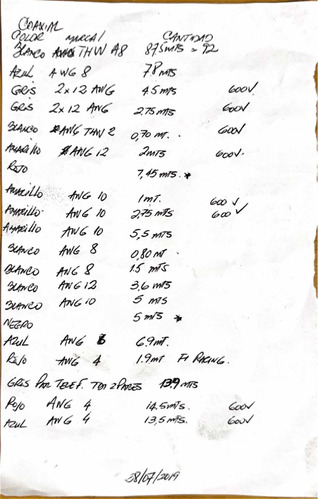 COAXIAL
COLOR MARCA/ CANTIDAD
BLANCO THW A8 87,5 MTS = 92
AZUL AWG 8 78 MTS
GRIS 2x12 AWG 4.5 MTS 600V
GRIS 2x12 AWG 2,75 MTS 600V
BLANCO AWG THW 2 0,70 MT. 600V
AMARILLO AWG 12 2 MTS 600V.
ROJO 7,45 MTS. *
AMARILLO AWG 10 1 MT. 600 V
AMARILLO. AWG 10 2,75 MTS 600 V
AMARILLO AWG 10 5,5 MTS
BLANCO AWG 8 0,80 MT.
BLANCO AWG 8 15 MTS
BLANCO AWG 12 3,6 MTS
BLANCO AWG 10 5 MTS
NEGRO 5 MTS *
AZUL AWG 6.9 MT.
ROJO AWG 4 1.9 MT F1 RACING.
GRIS PAR TELEF. 2 PARES 139 MTS
ROJO AWG 4 14.5 MTS. 600V
AZUL AWG 4 13,5 MTS. 600V
28/07/2019